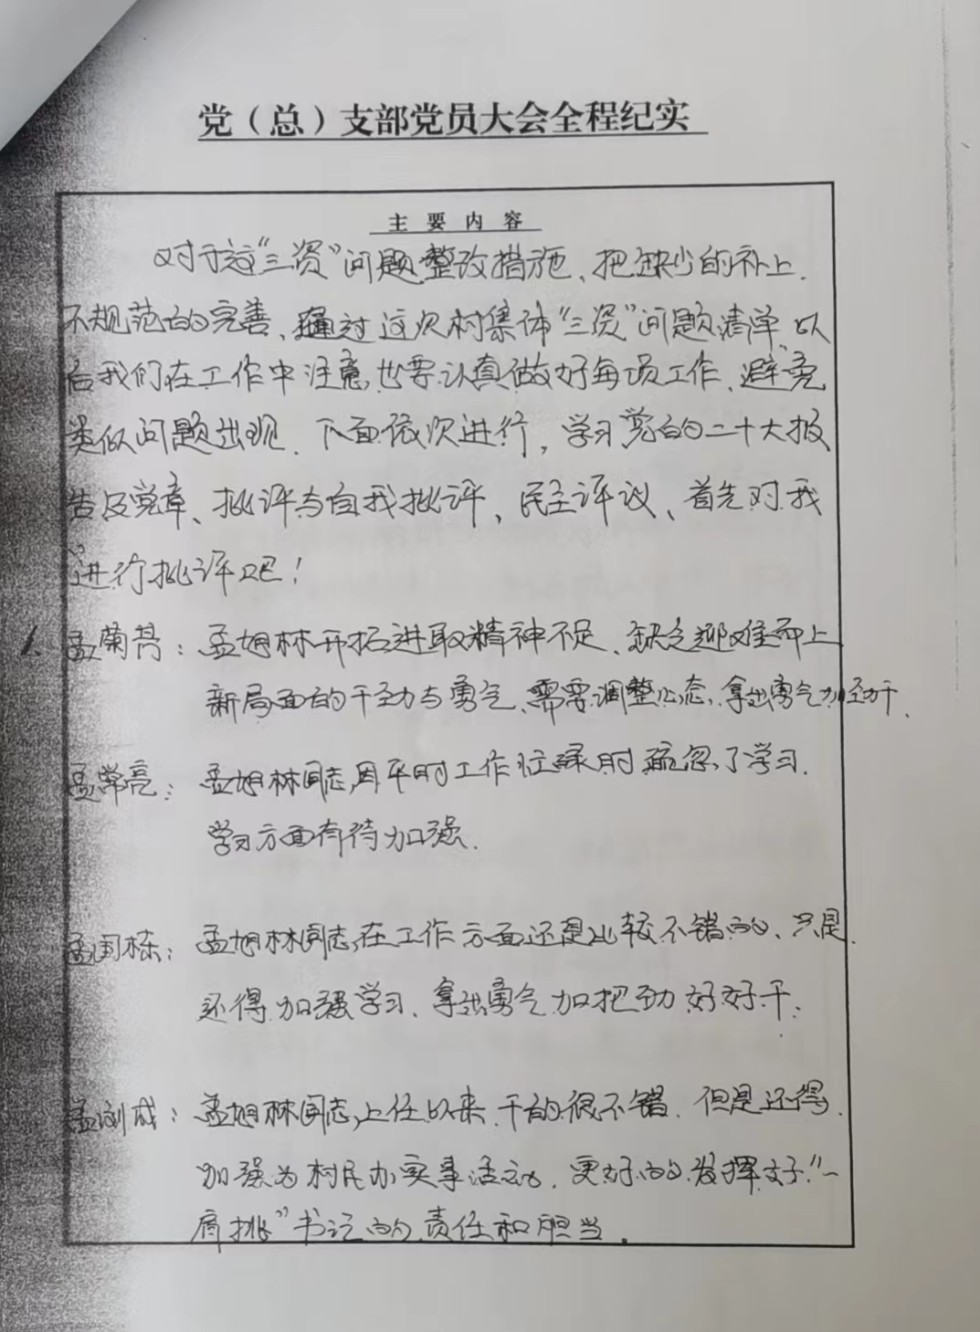 党（总）支部党员大会全程纪实
主要内容
对于这“三资”问题整改措施、把缺少的补上.
不规范的完善、通过这次村集体“三资”问题清浄、以
后我们在工作中注意,也要认真做好每项工作、避免
类似问题出现. 下面依次进行，学习党的二十大报
告及党章、批评与自我批评，民主评议、首先对我
进行批评吧！
1. 孟菊芳：孟旭林开拓进取精神不足、缺乏迎难而上
新局面的干劲与勇气、需要调整心态,拿出勇气加劲干.
孟常亮：孟旭林同志,因平时工作忙碌时疏忽了学习.
学习方面有待加强.
孟国栋：孟旭林同志,在工作方面还是比较不错的、只是.
还得加强学习、拿出勇气加把劲好好干.
孟浏成：孟旭林同志,上任以来,干的很不错. 但是还得.
加强为村民办实事活动. 更好的发挥好“一
肩挑”书记的责任和担当.